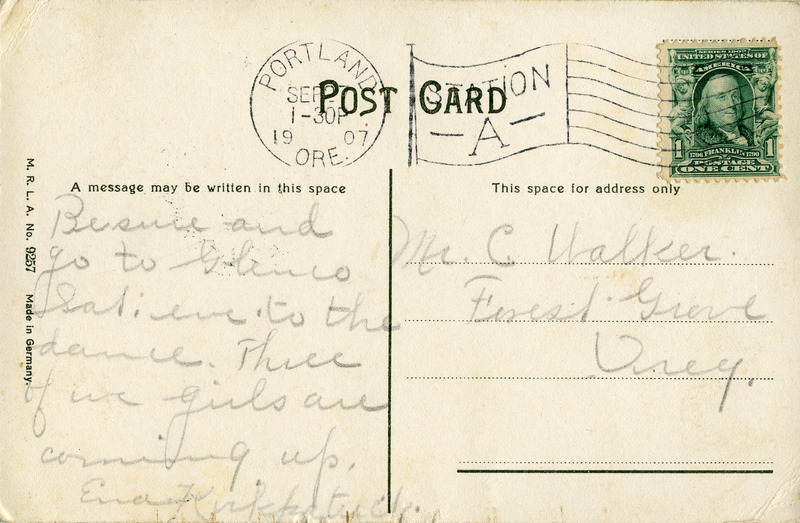 PORTLAND
SEP
1-30P
19 07
ORE.
STATION
A
POST CARD
SERIES 1902
UNITED STATES OF
AMERICA
1 1
FRANKLIN 1790
POSTAGE
ONE CENT
A message may be written in this space
This space for address only
M. R. L. A. No. 9257 Made in Germany.
Besure and
go to Glenco
Sat. eve. to the
dance. Three
of we girls are
coming up.
Kirkpatrick.
Mr. C Walker.
Forest Grove
Oreg.